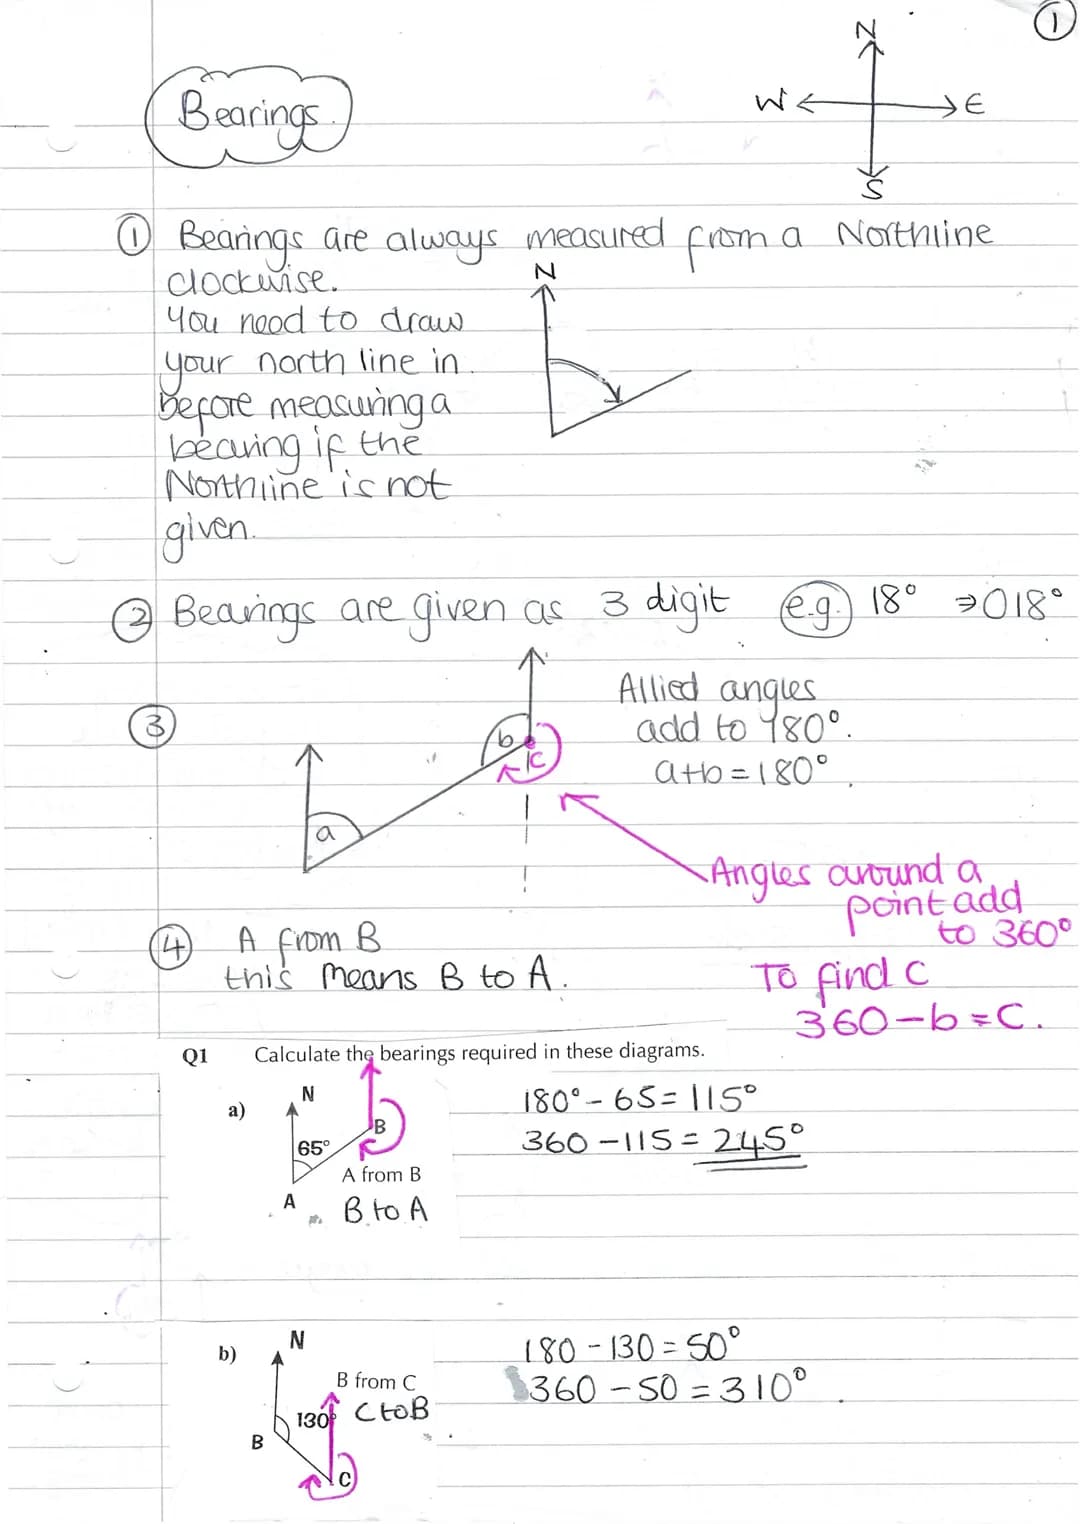 ①
N
W E
S
Bearings.
① Bearings are always measured from a Northline
clockwise.
N
You need to draw
your north line in
before measuring a
bearing if the
Northline is not
given.
② Bearings are given as 3 digit e.g. 18° ⇒018°
③
Allied angles
add to 180°.
a+b=180°
b
c
a
Angles around a
point add
to 360°
④ A from B
this means B to A.
To find c
360-b=c.
Q1 Calculate the bearings required in these diagrams.
a)
N
B
65°
A from B
A
B to A
180°-65=115°
360-115=245°
b)
N
B from C
130°
C to B
B
C
180-130=50°
360-50=310°